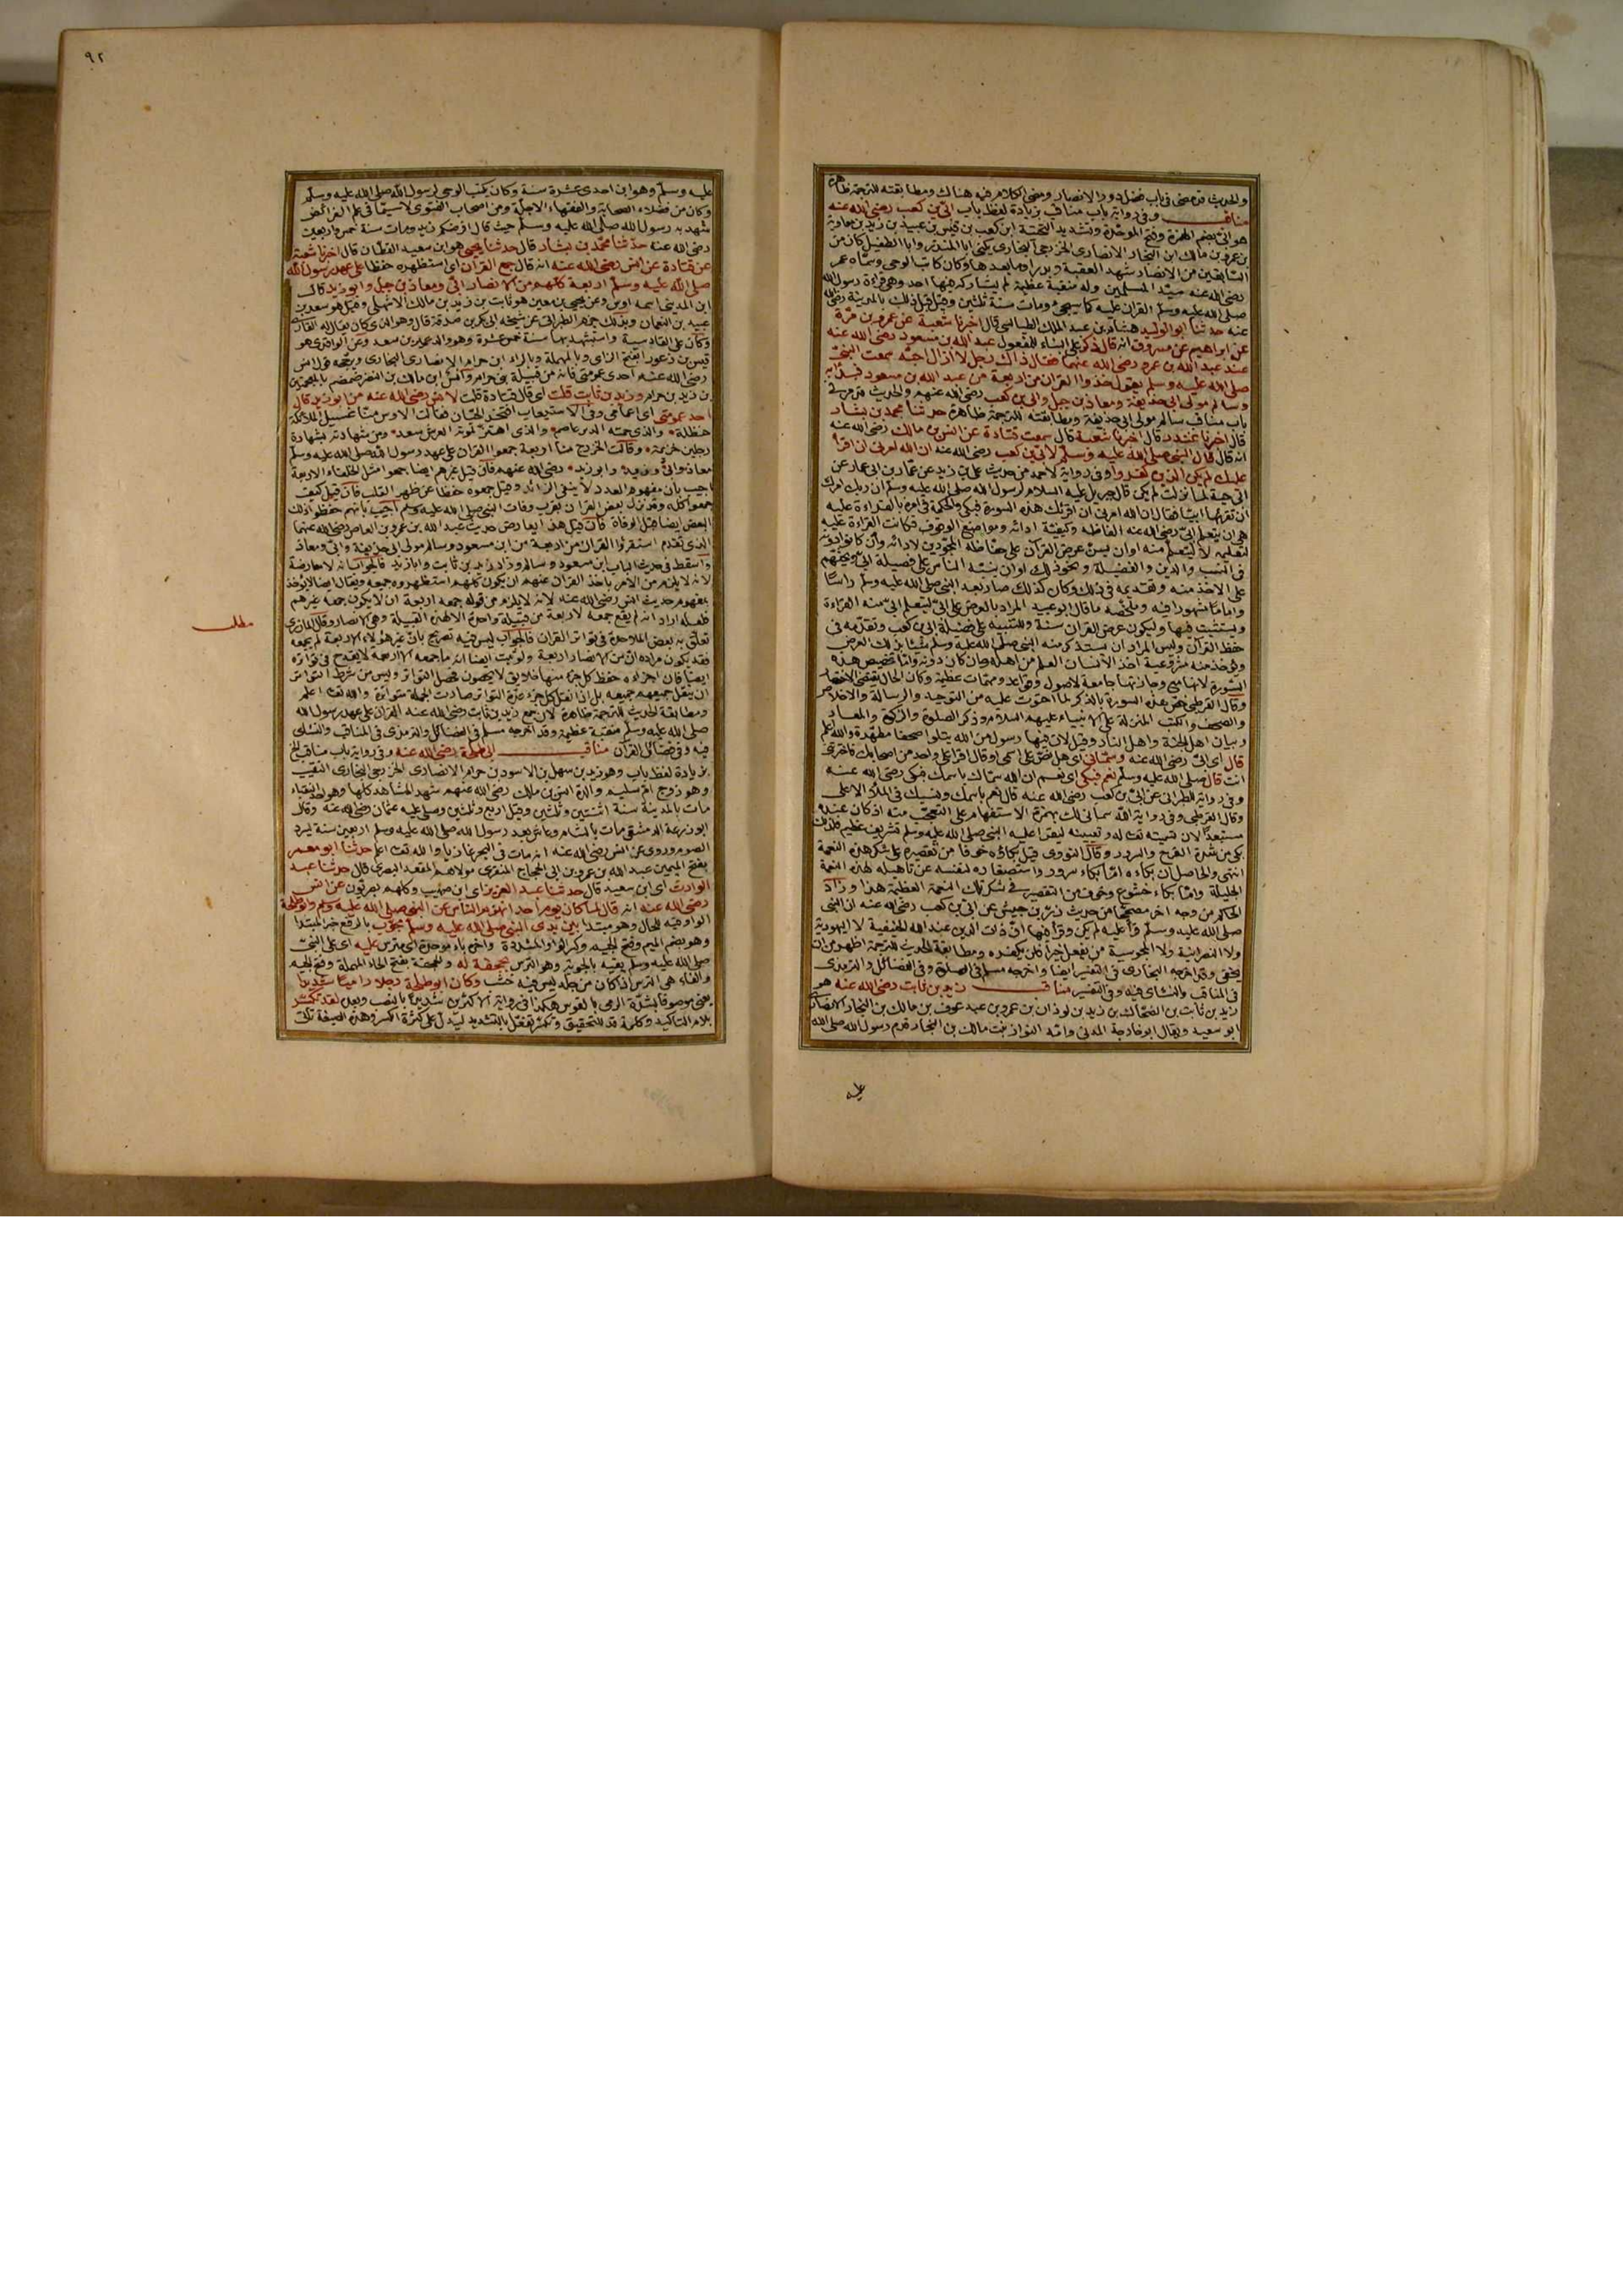 والحديث قد مضى في باب فضل دور الانصار ومضى الكلام فيه هناك ومطابقته للترجمة ظاهرة
مناقب وفي رواية باب مناقب بزيادة لفظ باب ابي بن كعب رضي الله عنه
هو ابي بضم الهمزة وفتح الموحدة وتشديد التحتية ابن كعب بن قيس بن عبيد بن زيد بن معاوية
بن عمرو بن مالك ابن النجار الانصاري الخزرجي النجاري يكنى ابا المنذر وابا الطفيل كان من
السابقين من الانصار شهد العقبة وبدرا وما بعدها وكان كاتب الوحي وسماه عمر
رضي الله عنه سيد المسلمين وله منقبة عظيمة لم يشاركه فيها احد وهي قراءة رسول الله
صلى الله عليه وسلم القران عليه كما سيجيء ومات سنة ثلثين وقيل قبل ذلك بالمدينة رضي الله
عنه حدثنا ابو الوليد هشام بن عبد الملك الطيالسي قال اخبرنا شعبة عن عمرو بن مرة
عن ابراهيم عن مسروق انه قال ذكر على البناء للمفعول عبد الله بن مسعود رضي الله عنه
عند عبد الله بن عمرو رضي الله عنهما فقال ذاك رجل لا ازال احبه سمعت النبي
صلى الله عليه وسلم يقول خذوا القران من اربعة من عبد الله بن مسعود فبدا به
وسالم مولى ابي حذيفة ومعاذ بن جبل وابي بن كعب رضي الله عنهم والحديث قد مر في
باب مناقب سالم مولى ابي حذيفة ومطابقته للترجمة ظاهرة حدثنا محمد بن بشار
قال اخبرنا غندر قال اخبرنا شعبة قال سمعت قتادة عن انس بن مالك رضي الله عنه
انه قال قال النبي صلى الله عليه وسلم لابي بن كعب رضي الله عنه ان الله امرني ان اقرا
عليك لم يكن الذين كفروا وفي رواية لاحمد من حديث علي بن زيد عن عمار بن ابي عمار عن
ابي حبة لما نزلت لم يكن قال جبريل عليه السلام لرسول الله صلى الله عليه وسلم ان ربك امرك
ان تقرئها ابيا فقال ان الله امرني ان اقرئك هذه السورة فبكى والحكمة في امره بالقراءة عليه
هي ان يتعلم ابي رضي الله عنه الفاظه وكيفية ادائه ومواضع الوقوف فكانت القراءة عليه
لتعليمه لا ليتعلم منه اوان يسن عرض القران على حفاظه المجودين لادائه وان كانوا دونه
في النسب والدين والفضيلة ونحو ذلك اوان ينبه الناس على فضيلة ابي ويحثهم
على الاخذ منه وتقديمه في ذلك وكان كذلك صار بعد النبي صلى الله عليه وسلم راسا
واماما مشهورا فيه وملخصه ما قال ابو عبيد المراد بالعرض على ابي ليتعلم ابي منه القراءة
ويستثبت فيها وليكون عرض القران سنة وللتنبيه على فضيلة ابي بن كعب وتقدمه في
حفظ القران وليس المراد ان يستذكر منه النبي صلى الله عليه وسلم شيئا بذلك العرض
ويؤخذ منه مشروعية اخذ الانسان العلم من اهله وان كان دونه واما تخصيص هذه
السورة لانها مع وجازتها جامعة لاصول وقواعد ومهمات عظيمة وكان الحال يقتضي الاختصار
وقال القرطبي خص هذه السورة بالذكر لما احتوت عليه من التوحيد والرسالة والاخلاص
والصحف والكتب المنزلة على الانبياء عليهم السلام وذكر الصلوة والزكوة والمعاد
وبيان اهل الجنة واهل النار وقيل لان فيها رسول من الله يتلوا صحفا مطهرة والله اعلم
قال اي ابي رضي الله عنه وسماني اي هل نص على اسمي او قال اقرا على واحد من اصحابك فاخترتني
انت قال صلى الله عليه وسلم نعم فبكى اي نعم ان الله سماك باسمك فبكى رضي الله عنه
وفي رواية الطبراني عن ابي بن كعب رضي الله عنه قال نعم باسمك ونسبك في الملا الاعلى
وقال القرطبي وفي رواية آلله سماني لك بهمزة الاستفهام على التعجب منه اذ كان عنده
مستبعدا لان تسميته تعالى له وتعيينه ليقرا عليه النبي صلى الله عليه وسلم تشريف عظيم فلذلك
بكى من شدة الفرح والسرور وقال النووي قيل بكاؤه خوفا من تقصيره على شكر هذه النعمة
انتهى والحاصل ان بكاءه اما بكاء سرور واستصغاره لنفسه عن تاهيله لهذه النعمة
الجليلة واما بكاء خشوع وخوف من التقصير في شكر تلك النعمة العظيمة هذا وزاد
الحاكم من وجه اخر مصححا من حديث زر بن حبيش عن ابي بن كعب رضي الله عنه ان النبي
صلى الله عليه وسلم قرا عليه لم يكن وقرا فيها ان ذات الدين عند الله الحنيفية لا اليهودية
ولا النصرانية ولا المجوسية من يفعل خيرا فلن يكفره ومطابقة الحديث للترجمة اظهر من ان
يخفى وقد اخرجه البخاري في التفسير ايضا واخرجه مسلم في الصلوة وفي الفضائل والترمذي
في المناقب والنسائي فيه وفي التفسير مناقب زيد بن ثابت رضي الله عنه هو
زيد بن ثابت بن الضحاك بن زيد بن لوذان بن عمرو بن عبد عوف بن مالك بن النجار الانصاري
ابو سعيد ويقال ابو خارجة المدني وامه النوار بنت مالك بن النجار قدم رسول الله صلى الله
عليه
٩٢
عليه وسلم وهو ابن احدى عشرة سنة وكان يكتب الوحي لرسول الله صلى الله عليه وسلم
وكان من فضلاء الصحابة والفقهاء الاجلة ومن اصحاب الفتوى لا سيما في علم الفرائض
شهد به رسول الله صلى الله عليه وسلم حيث قال افرضكم زيد ومات سنة خمس واربعين
رضي الله عنه حدثنا محمد بن بشار قال حدثنا يحيى هو ابن سعيد القطان قال اخبرنا شعبة
عن قتادة عن انس رضي الله عنه انه قال جمع القران اي استظهره حفظا على عهد رسول الله
صلى الله عليه وسلم اربعة كلهم من الانصار ابي ومعاذ بن جبل وابو زيد قال
ابن المديني اسمه اوس وعن يحيى بن معين هو ثابت بن زيد بن مالك الاشهلي وقيل هو سعد بن
عبيد بن النعمان وبذلك جزم الطبراني عن شيخه ابي بكر بن صدقة قال وهو الذي كان يقال له القاري
وكان على القادسية واستشهد بها سنة خمس عشرة وهو والد عمير بن سعد وعن الواقدي هو
قيس بن زعورا بفتح الزاي وبالمهملة وبالراء ابن حرام الانصاري النجاري ويرجحه قول انس
رضي الله عنه احدى عمومتي فانه من قبيلة بني حرام وانس ابن مالك بن النضر بن ضمضم بالمعجمتين
بن زيد بن حرام وزيد بن ثابت قلت اي قال قتادة قلت لانس رضي الله عنه من ابو زيد قال
احد عمومتي اي اعمامي وفي الاستيعاب افتخر الحيان فقالت الاوس منا غسيل الملائكة
حنظلة والذي حمته الدبر عاصم والذي اهتز لموته العرش سعد ومن شهادته بشهادة
رجلين خزيمة وقالت الخزرج منا اربعة جمعوا القران على عهد رسول الله صلى الله عليه وسلم
معاذ وابي وزيد وابو زيد رضي الله عنهم فان قيل غيرهم ايضا جمعوا مثل الخلفاء الاربعة
اجيب بان مفهوم العدد لا ينفي الزائد وقيل جمعوه حفظا عن ظهر القلب فان قيل كيف
جمعوا كله وقد نزل بعض القران بقرب وفات النبي صلى الله عليه وسلم اجيب بانهم حفظوا ذلك
البعض ايضا قبل الوفاة فان قيل هذا يعارض حديث عبد الله بن عمرو بن العاص رضي الله عنهما
الذي تقدم استقرؤا القران من اربعة من ابن مسعود وسالم مولى ابي حذيفة وابي ومعاذ
واسقط في حديث الباب ابن مسعود وسالم وزاد زيد بن ثابت وابا زيد فالجواب انه لا معارضة
لانه لا يلزم من الامر باخذ القران عنهم ان يكون كلهم استظهروه جميعه ويقال ايضا لا يؤخذ
بمفهوم حديث انس رضي الله عنه لانه لا يلزم من قوله جمعه اربعة ان لا يكون جمعه غيرهم
فلعله اراد انه لم يقع جمعه لاربعة من قبيلة واحدة الا لهذه القبيلة وهي الانصار وقال المازري
مطلب
تعلق به بعض الملاحدة في تواتر القران فالجواب ليس فيه تصريح بان غير هؤلاء الاربعة لم يجمعه
فقد يكون مراده ان من الانصار اربعة ولو ثبت ايضا انه ما جمعه الا اربعة لا يقدح في تواتره
ايضا فان اجزاءه حفظ كل جزء منها خلايق لا يحصون يحصل التواتر وليس من شرط التواتر
ان ينقل جميعهم جميعه بل اذا نقل كل جزء عدد التواتر صارت الجملة متواترة والله تعالى اعلم
ومطابقة الحديث للترجمة ظاهرة لان جمع زيد بن ثابت رضي الله عنه القران على عهد رسول الله
صلى الله عليه وسلم منقبة عظيمة وقد اخرجه مسلم في الفضائل والترمذي في المناقب والنسائي
فيه وفي فضائل القران مناقب ابي طلحة رضي الله عنه وفي رواية باب مناقب الخ
بزيادة لفظ باب وهو زيد بن سهل بن الاسود بن حرام الانصاري الخزرجي النجاري النقيب
وهو زوج ام سليم والدة انس بن مالك رضي الله عنهم شهد المشاهد كلها وهو احد النقباء
مات بالمدينة سنة اثنتين وثلثين وقيل اربع وثلثين وصلى عليه عثمان رضي الله عنه وقال
ابو زرعة الدمشقي مات بالشام وعاش بعد رسول الله صلى الله عليه وسلم اربعين سنة يسرد
الصوم وروى عن انس رضي الله عنه انه مات في البحر غازيا والله تعالى اعلم حدثنا ابو معمر
بفتح الميمين عبد الله بن عمرو بن ابي الحجاج المنقري مولاهم المقعد البصري قال حدثنا عبد
الوارث اي ابن سعيد قال حدثنا عبد العزيز اي ابن صهيب وكلهم بصريون عن انس
رضي الله عنه انه قال لما كان يوم احد انهزم الناس عن النبي صلى الله عليه وسلم وابو طلحة
الواو فيه للحال وهو مبتدا بين يدي النبي صلى الله عليه وسلم مجوب بالرفع خبر المبتدا
وهو بضم الميم وفتح الجيم وكسر الواو المشددة واخره باء موحدة اي مترس عليه اي على النبي
صلى الله عليه وسلم يقيه بالجوبة وهو الترس بحجفة له والحجفة بفتح الحاء المهملة وفتح الجيم
والفاء هي الترس اذا كان من جلد ليس فيه خشب وكان ابو طلحة رجلا راميا شديدا
يعني موصوفا بشدة الرمي بالقوس هكذا في رواية الاكثرين شديدا بالنصب وبعده لقد تكسر
بلام التاكيد وكلمة قد للتحقيق وتكسر تفعل بالتشديد ليدل على كثرة الكسر وهذه الصيغة تاتي